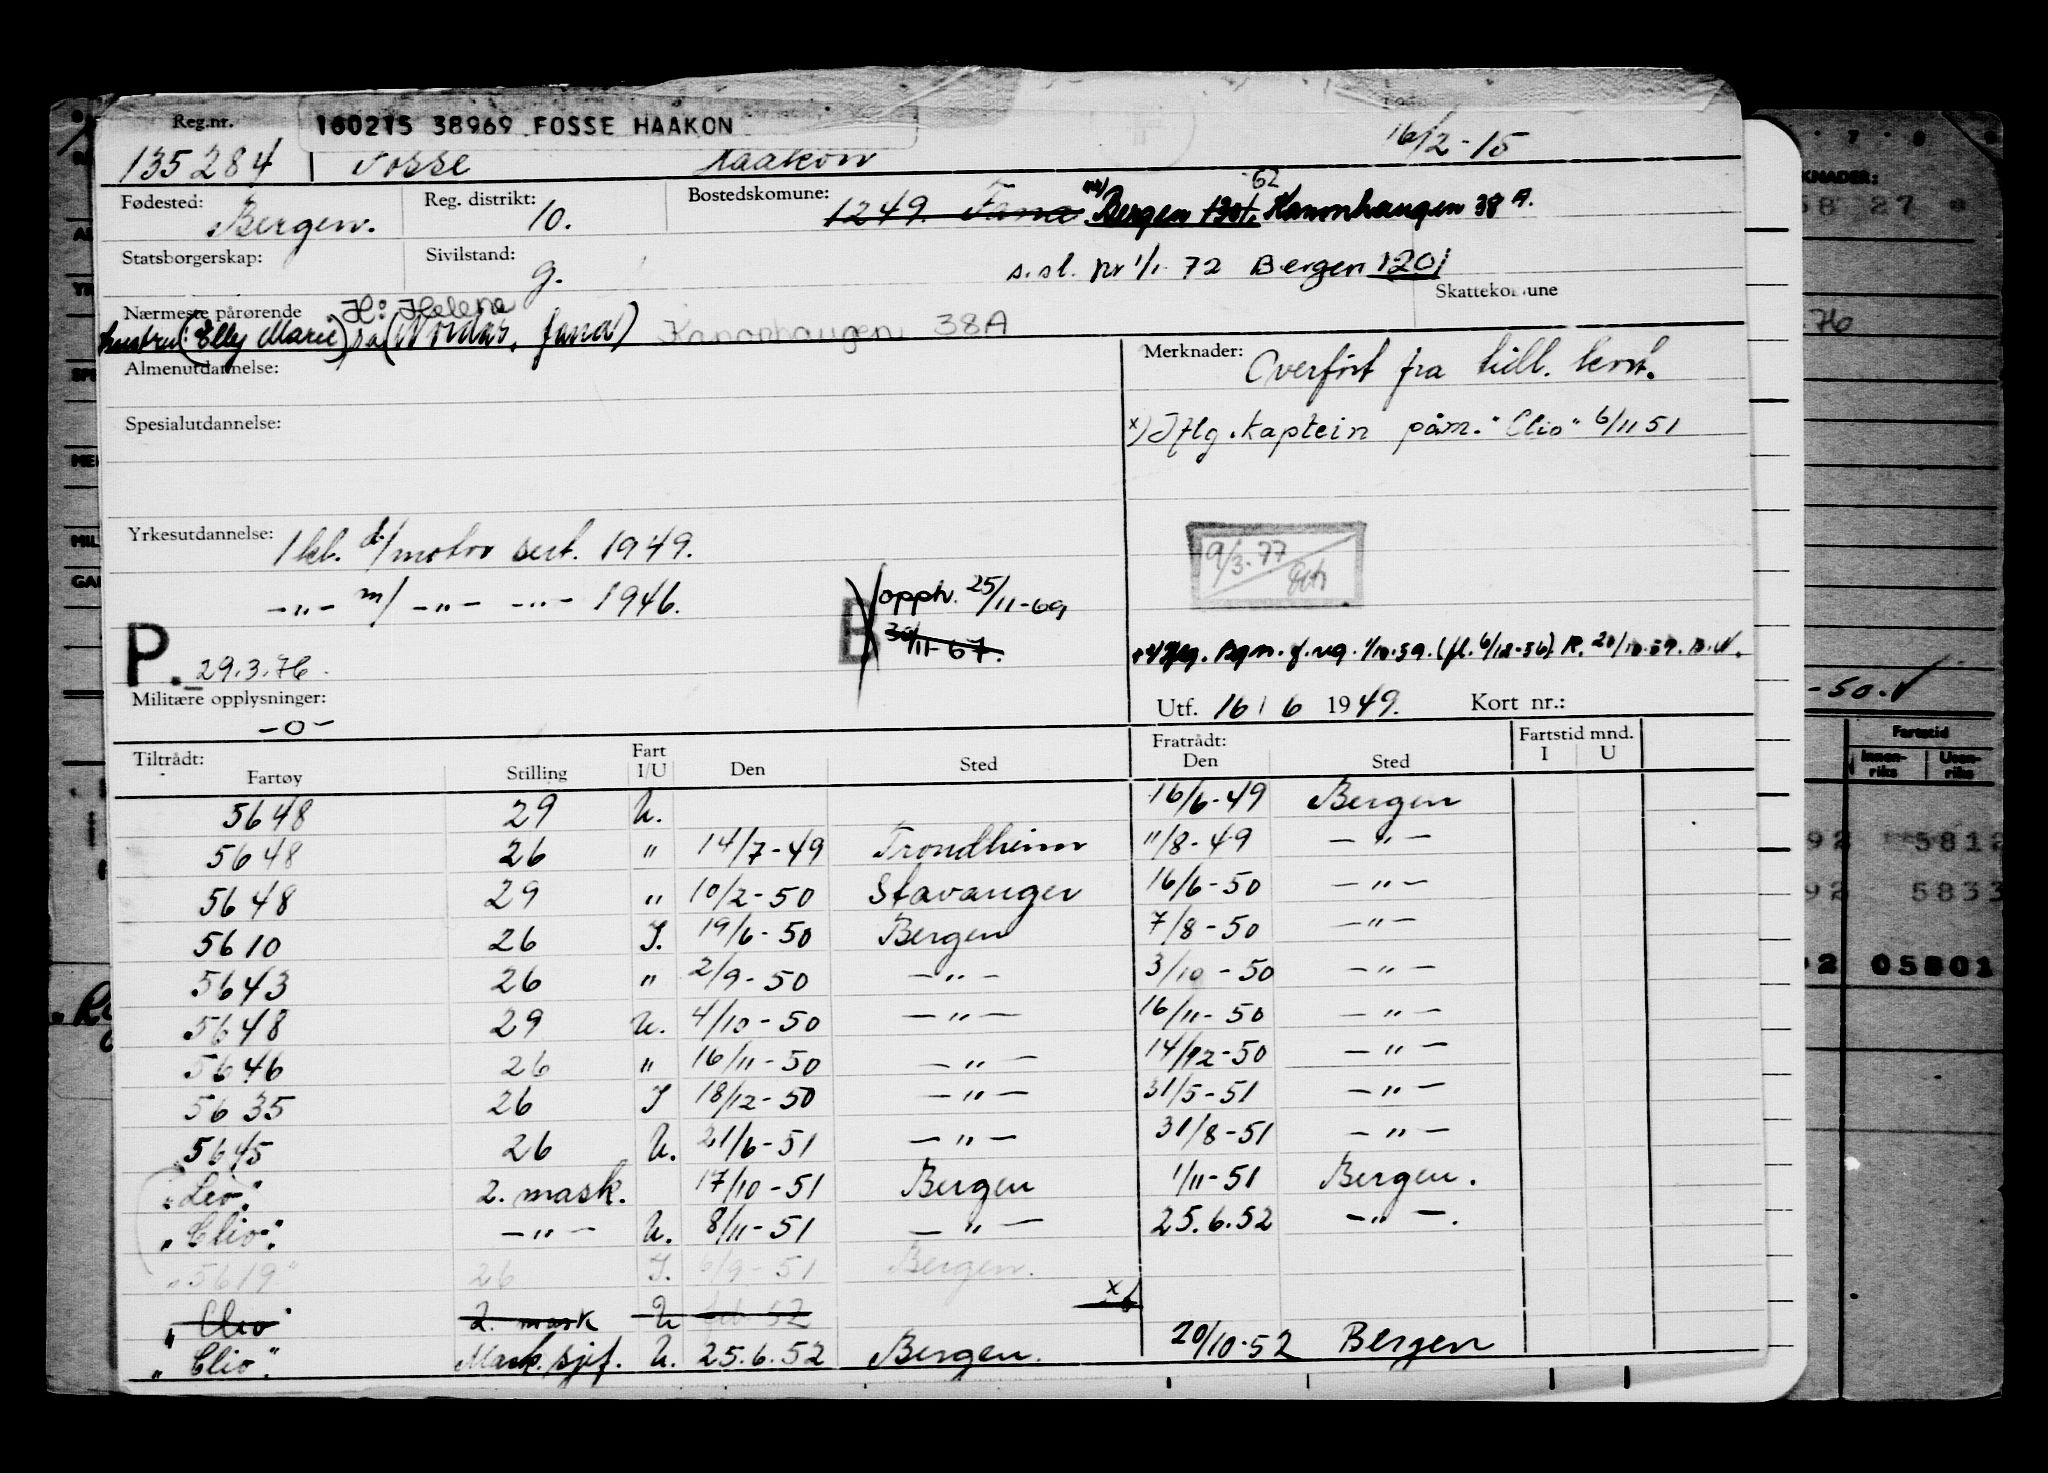 Reg.nr.
160215 38969 FOSSE HAAKON
135284 Fosse Haakon 16/2-15
Fødested: Bergen.
Reg. distrikt: 10.
Bostedskomune: 1249. Fana Bergen 1301. Kanonhaugen 38 A.
62
Statsborgerskap:
Sivilstand: g.
s.sl. pr 1/1 72 Bergen 1201
Skattekomune
Nærmeste pårørende H: Helene
hustru: (Elly Marie) sa (Nordås, Fana) Kanonhaugen 38A
Almenutdannelse:
Merknader: Overført fra tidl. kort.
Spesialutdannelse:
x) Iflg. kaptein påm. "Clio" 6/11 51
Yrkesutdannelse: 1 kl. d/motor sert. 1949.
9/3.77
-"- m/ -"- -"- 1946.
B
opph. 25/11-69
30/11-67.
P. 29.3.76.
Militære opplysninger:
-0-
Utf. 16/6 1949. Kort nr.:
Tiltrådt:
Fartøy Stilling Fart I/U Den Sted
Fratrådt:
Den Sted
Fartstid mnd.
I U
5648 29 U. 16/6-49 Bergen
5648 26 " 14/7-49 Trondheim 11/8-49 -"-
5648 29 " 10/2-50 Stavanger 16/6-50 -"-
5610 26 I. 19/6-50 Bergen 7/8-50 -"-
5643 26 " 2/9-50 -"- 3/10-50 -"-
5648 29 U. 4/10-50 -"- 16/11-50 -"-
5646 26 " 16/11-50 -"- 14/12-50 -"-
5635 26 I 18/12-50 -"- 31/5-51 -"-
5645 26 U. 21/6-51 -"- 31/8-51 -"-
"Leo". 2. mask. 17/10-51 Bergen 1/11-51 Bergen.
"Clio". -"- U. 8/11-51 -"- 25.6.52 -"-.
"5619" 26 I. 6/9-51 Bergen.
"Clio" 2. mask U feb. 52
"Clio". Mask.sjef. U. 25.6.52 Bergen. 20/10-52 Bergen
KNADER:
58 27
76
-50.
Fartstid
Innen-
riks
Uten-
riks
92 5812
92 5833
02 05801